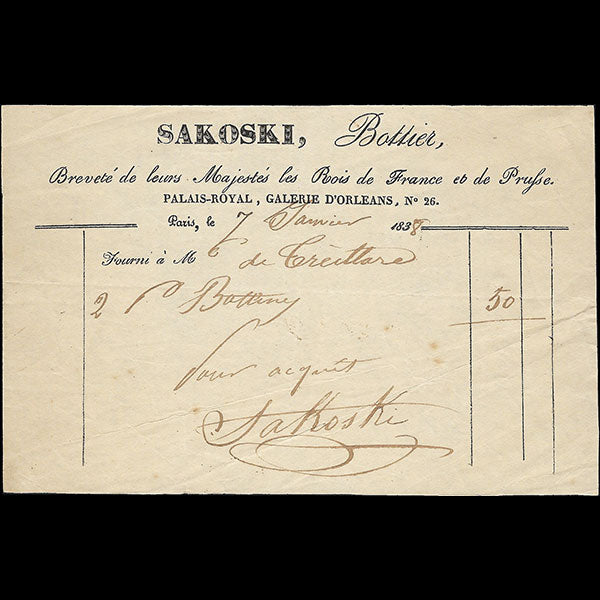 SAKOSKI, Bottier,
Breveté de leurs Majestés les Rois de France et de Prusse.
PALAIS-ROYAL, GALERIE D'ORLEANS, No 26.
Paris, le 7 Janvier 1838
Fourni à M de
2 p Bottines 50
Pour acquit
Sakoski